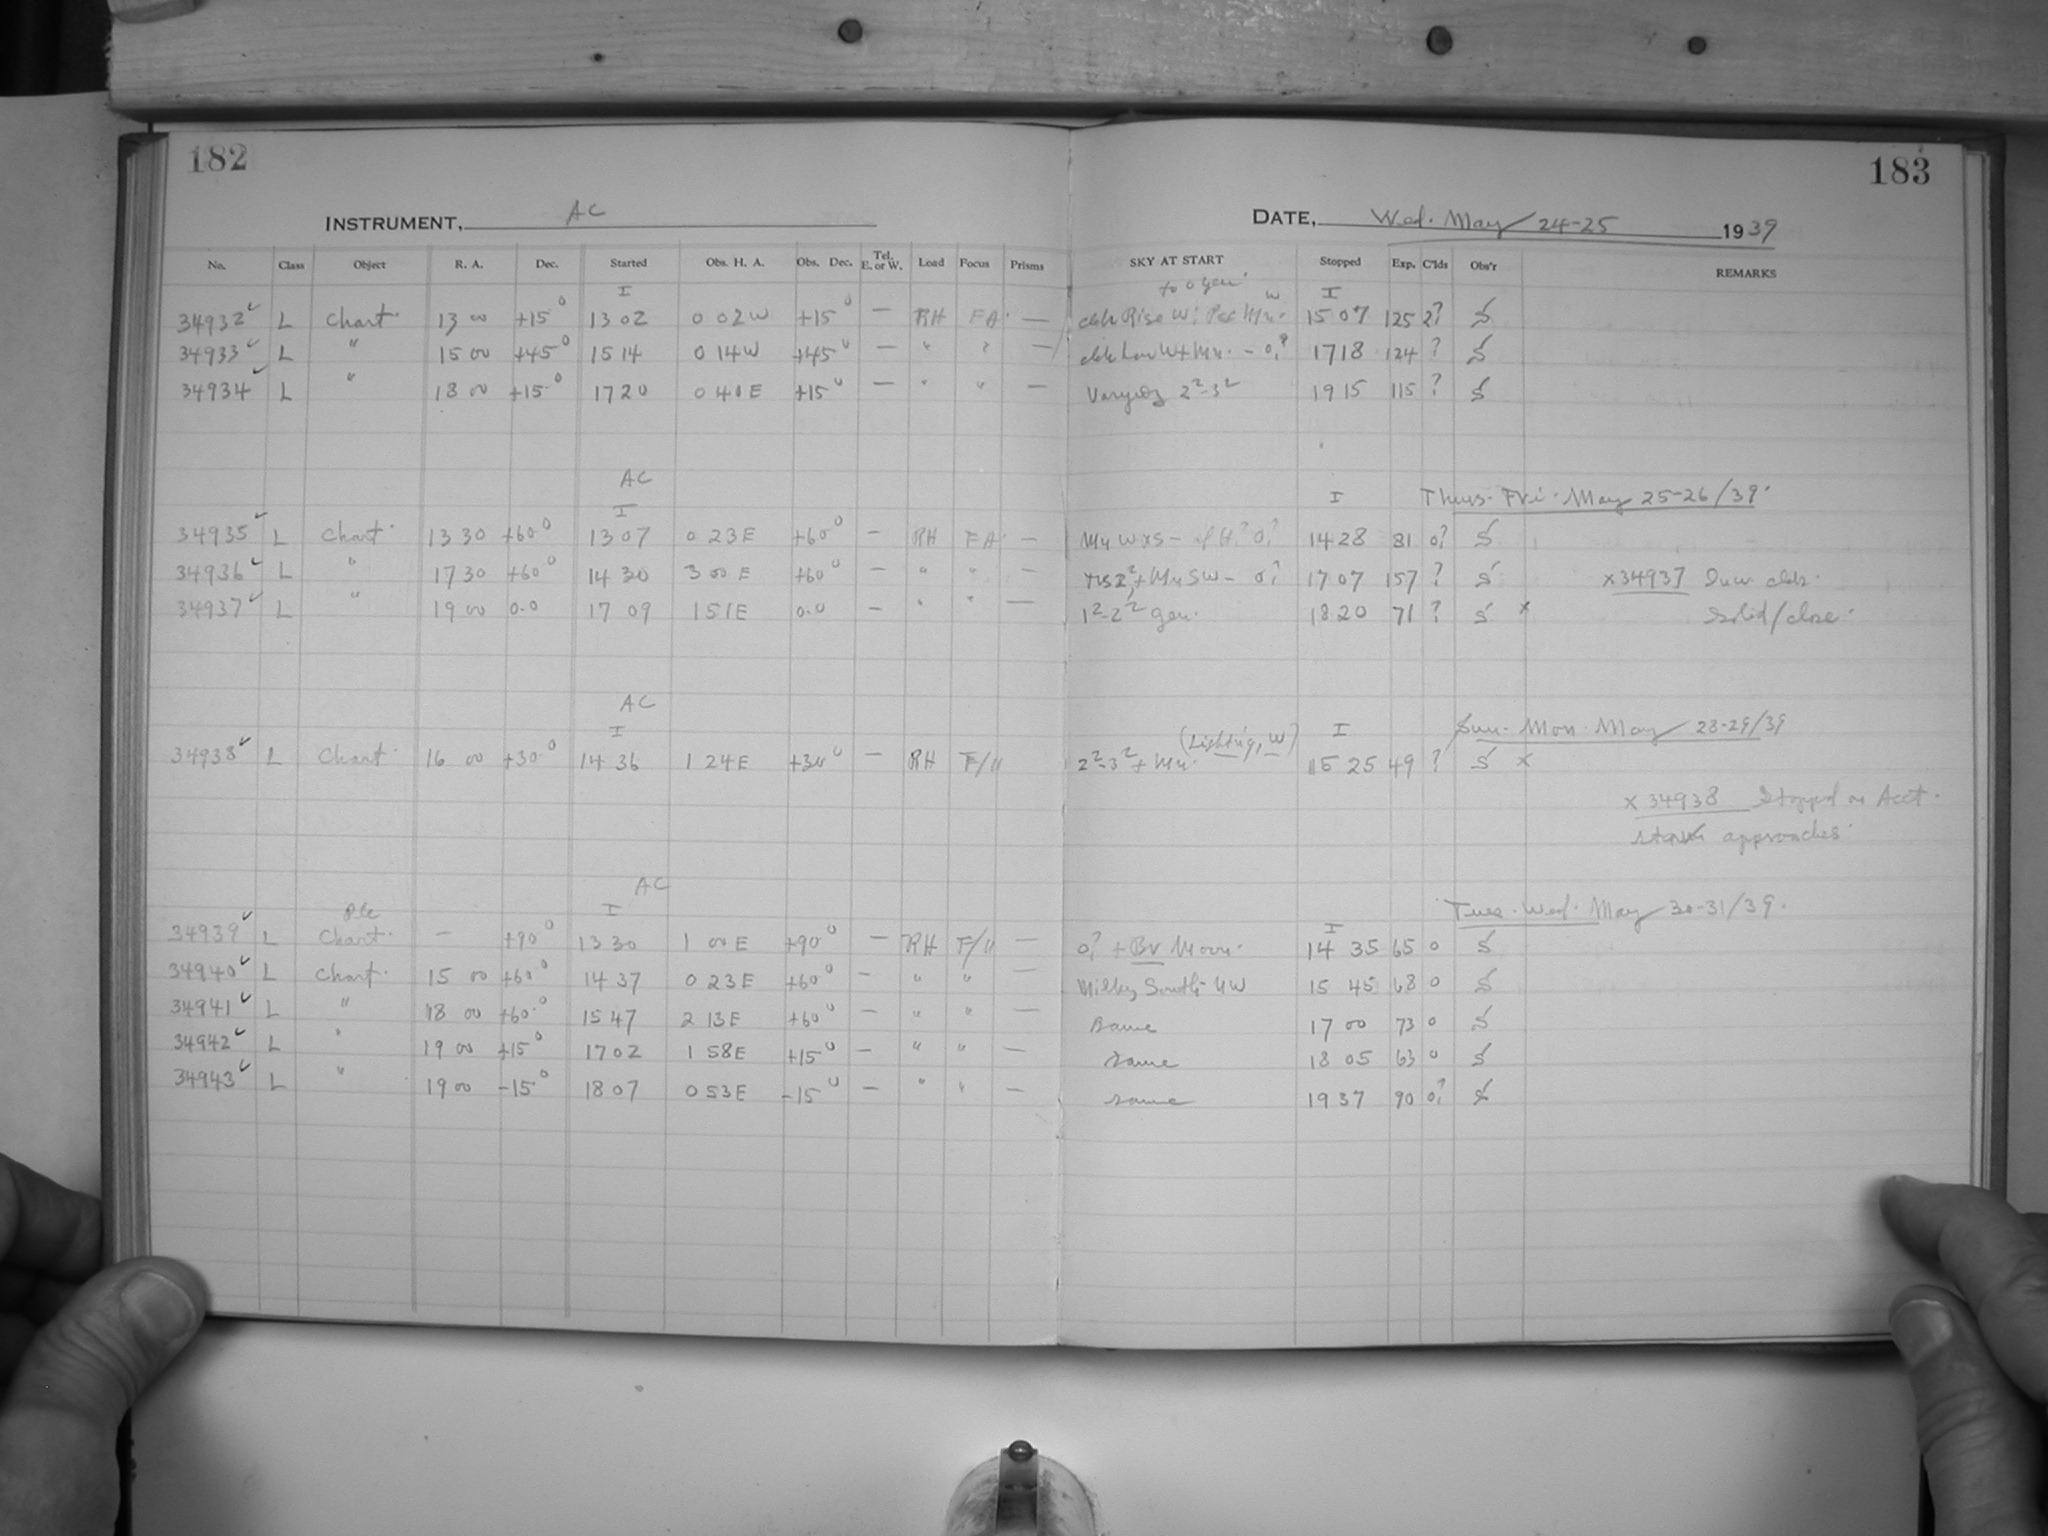 182
183
INSTRUMENT, AC
DATE, Wed. May 24-25 1939
No. Class Object R. A. Dec. Started Obs. H. A. Obs. Dec. Tel. E. or W. Load Focus Prisms SKY AT START Stopped Exp. C'lds Obs'r REMARKS
I to 0 gen W I
34932 ✓ L Chart 13 00 +15° 13 02 0 02 W +15° — RH FA — Rise W; 15 07 125 2? S
34933 ✓ L " 15 00 +45° 15 14 0 14 W +45° — " " — Low W + - 0? 17 18 124 ? S
34934 ✓ L " 18 00 +15° 17 20 0 40 E +15° — " " — Varying 2²-3² 19 15 115 ? S
AC
I I Thurs. Fri. May 25-26/39.
34935 ✓ L Chart 13 30 +60° 13 07 0 23 E +60° — RH FA — 14 28 81 0? S
34936 ✓ L " 17 30 +60° 14 30 3 00 E +60° — " " — SW - 0? 17 07 157 ? S x 34937
34937 ✓ L " 19 00 0.0 17 09 1 51 E 0.0 — " " — 1²-2² gen. 18 20 71 ? S x Solid/close.
AC
I (Lightn'g, W) I Sun. Mon. May 28-29/39
34938 ✓ L Chart 16 00 +30° 14 36 1 24 E +30° — RH F/11 2²-3² + 15 25 49 ? S x
x 34938 Stopped on Acct.
storm approaches.
AC
I I Tues. Wed. May 30-31/39.
34939 ✓ L Pole Chart — +90° 13 30 1 00 E +90° — RH F/11 — 0? + Br Moon. 14 35 65 0 S
34940 ✓ L Chart 15 00 +60° 14 37 0 23 E +60° — " " — Milky South - NW 15 45 68 0 S
34941 ✓ L " 18 00 +60° 15 47 2 13 E +60° — " " — Same 17 00 73 0 S
34942 ✓ L " 19 00 +15° 17 02 1 58 E +15° — " " — Same 18 05 63 0 S
34943 ✓ L " 19 00 -15° 18 07 0 53 E -15° — " " — Same 19 37 90 0? S